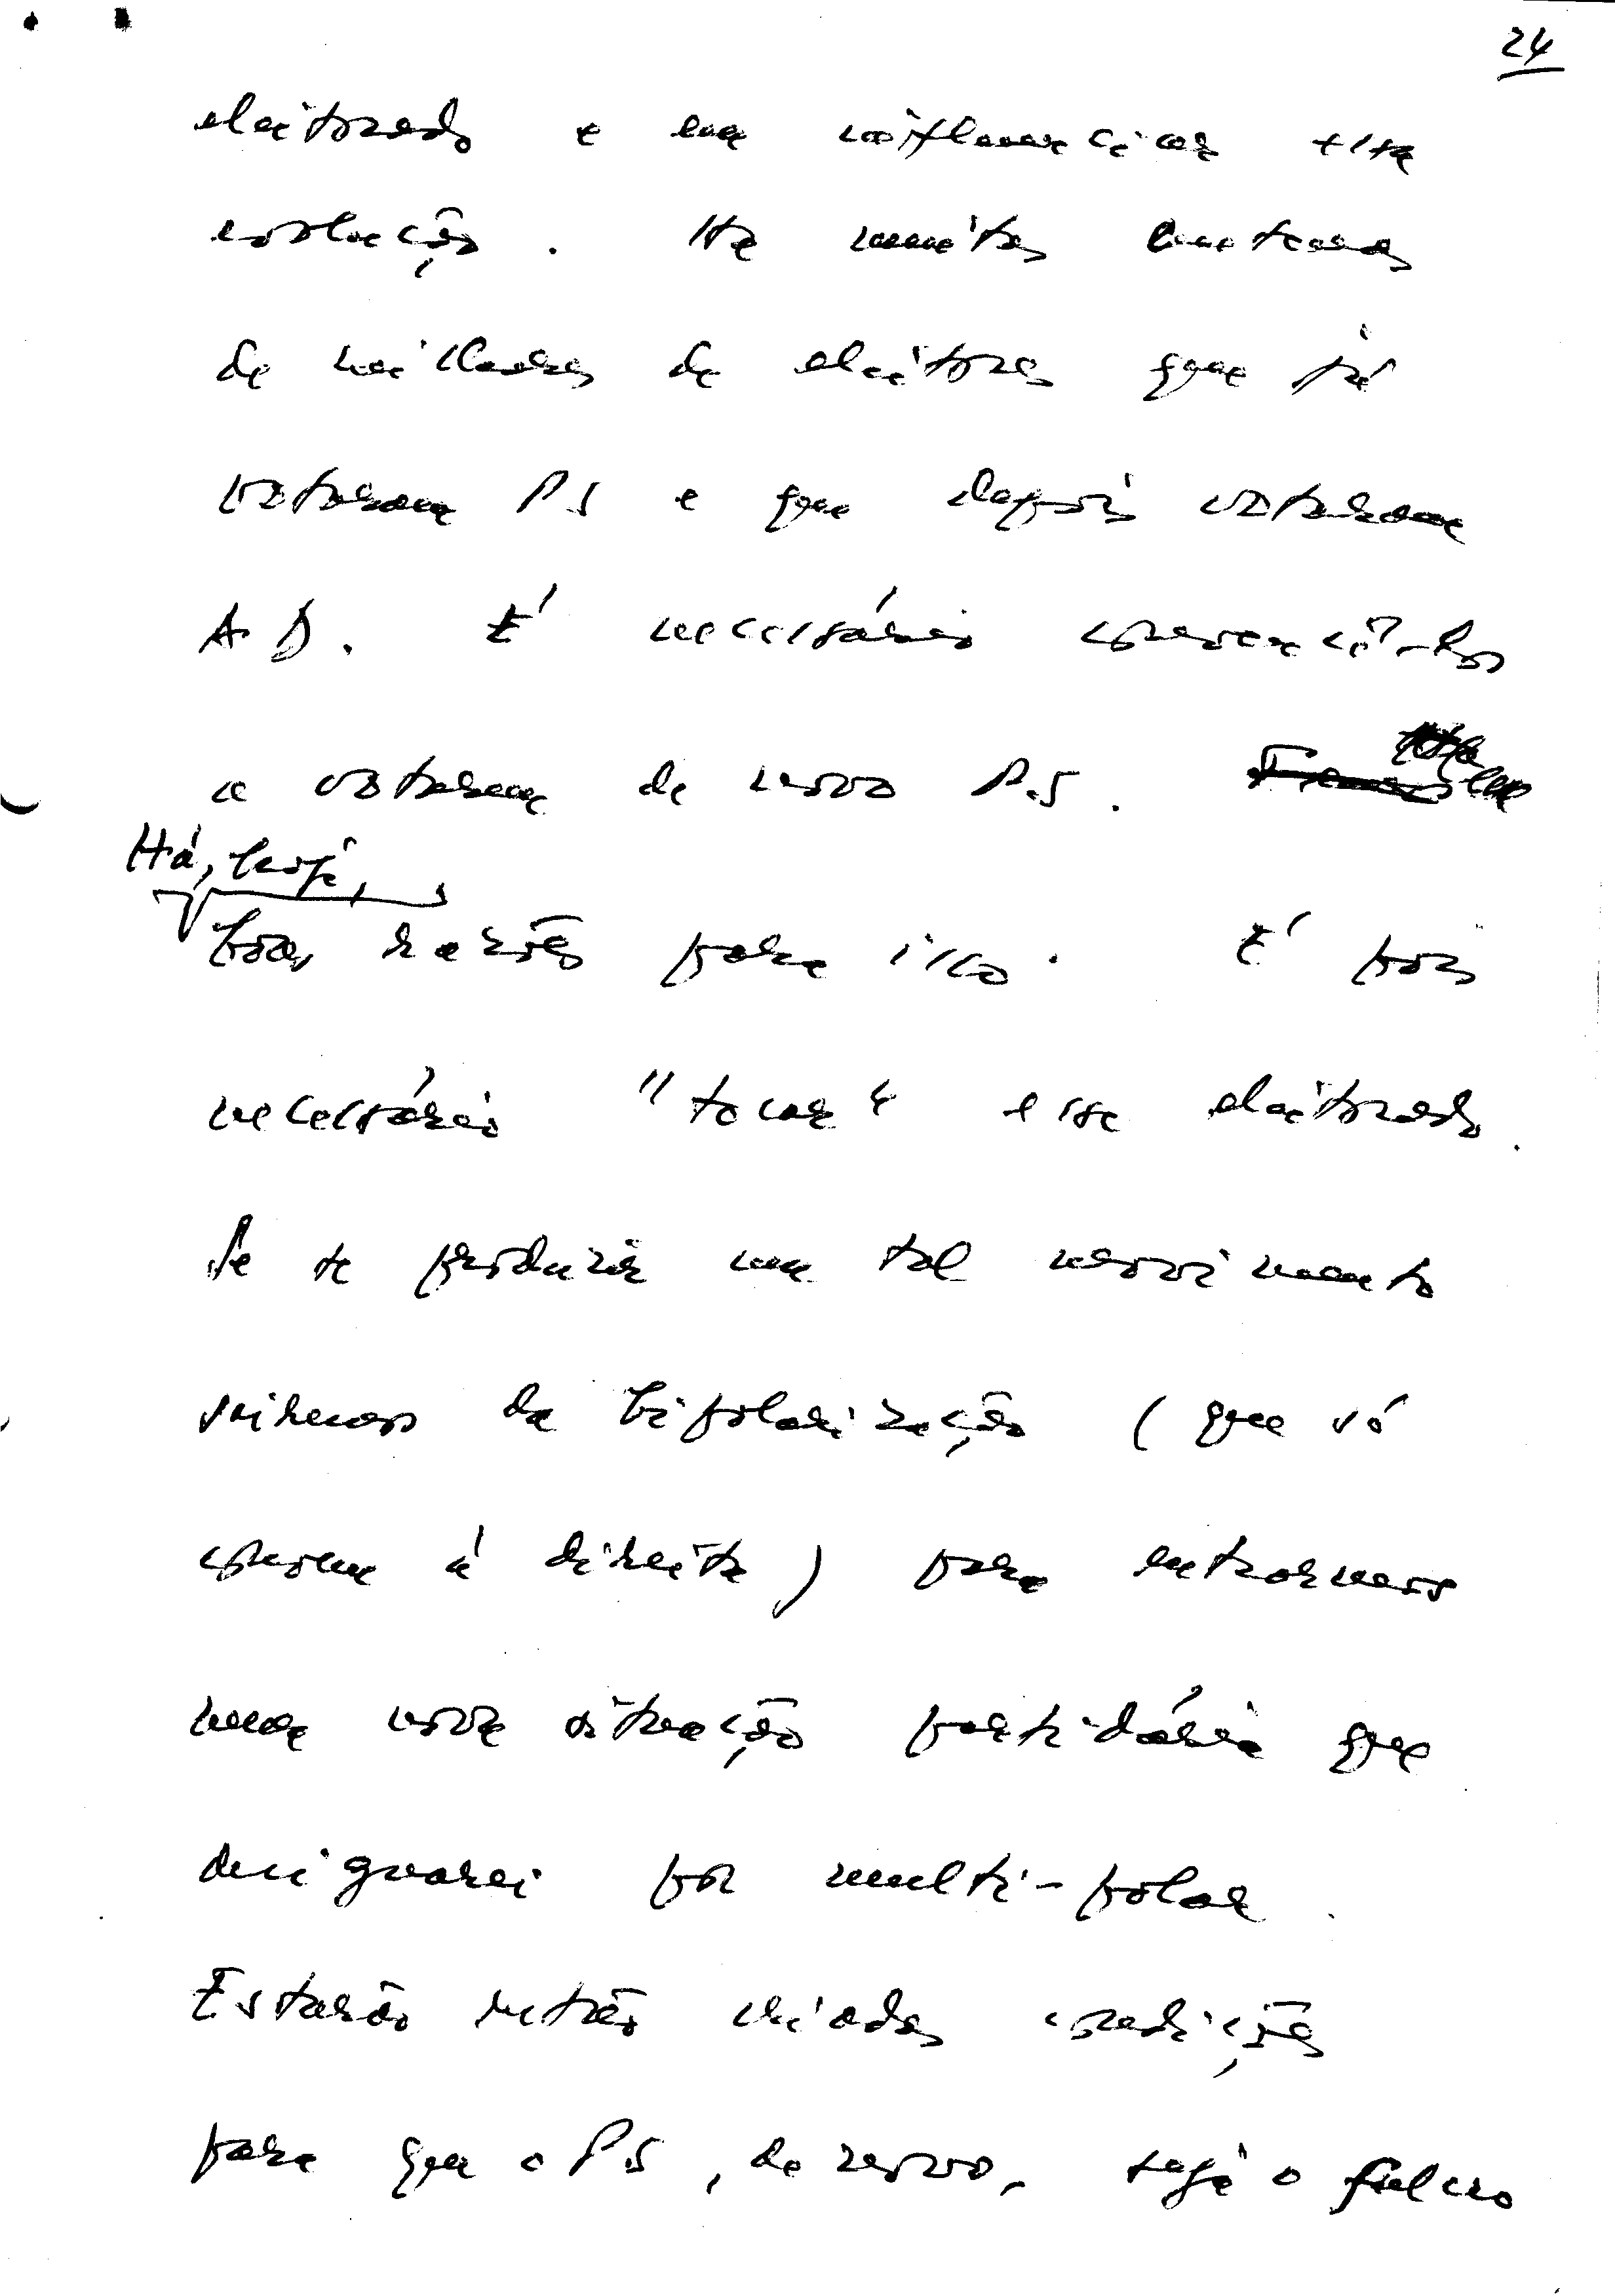 24
eleitorado e em influenciar essa
evolução. Há muitas centenas
de milhares de eleitores que já
votaram PS e que depois votaram
AD. É necessário convencê-los
a votarem de novo PS.
Há, hoje,
boas razões para isso. É pois
necessário "tocar" esse eleitorado.
Se se produzir um tal movimento
sairemos da bipolarização (que só
convem à direita) para entrarmos
numa nova situação partidária que
designarei por multi-polar.
Estarão então criadas condições
para que o PS, de novo, seja o fulcro